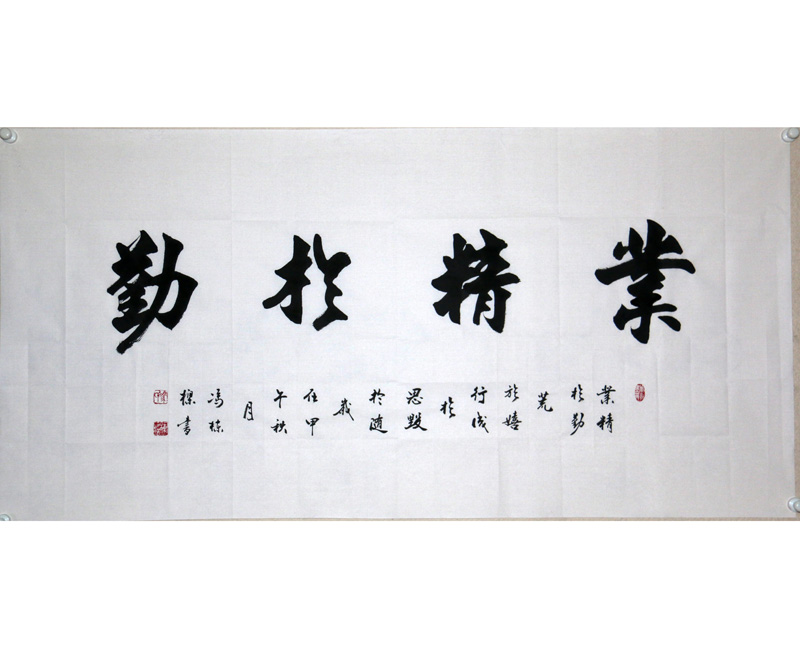 業精於勤
業精
於勤
荒
於嬉
行成
於
思毀
於随
歲
在甲
午秋
月
馮棟
樑書